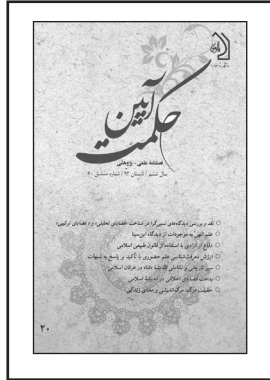 آیین
حکمت
فصلنامه علمی - پژوهشی
سال ششم / تابستان ۹۳ / شماره مسلسل ۲۰
نقد و بررسی دیدگاه‌های نسبی‌گرا در شناخت «قضایای تحلیلی» و «قضایای ترکیبی»
علم الهی به موجودات از دیدگاه ابن‌سینا
دفاع از آزادی با استفاده از قانون طبیعی اسلامی
ارزش معرفت‌شناسی علم حضوری با تأکید بر پاسخ به شبهات
سیر تاریخی و تکاملی اندیشهٔ «فنا» در عرفان اسلامی
بداهت قضایای اخلاقی در اندیشهٔ اسلامی
حقیقت مرگ، مرگ‌اندیشی و معنای زندگی
۲۰